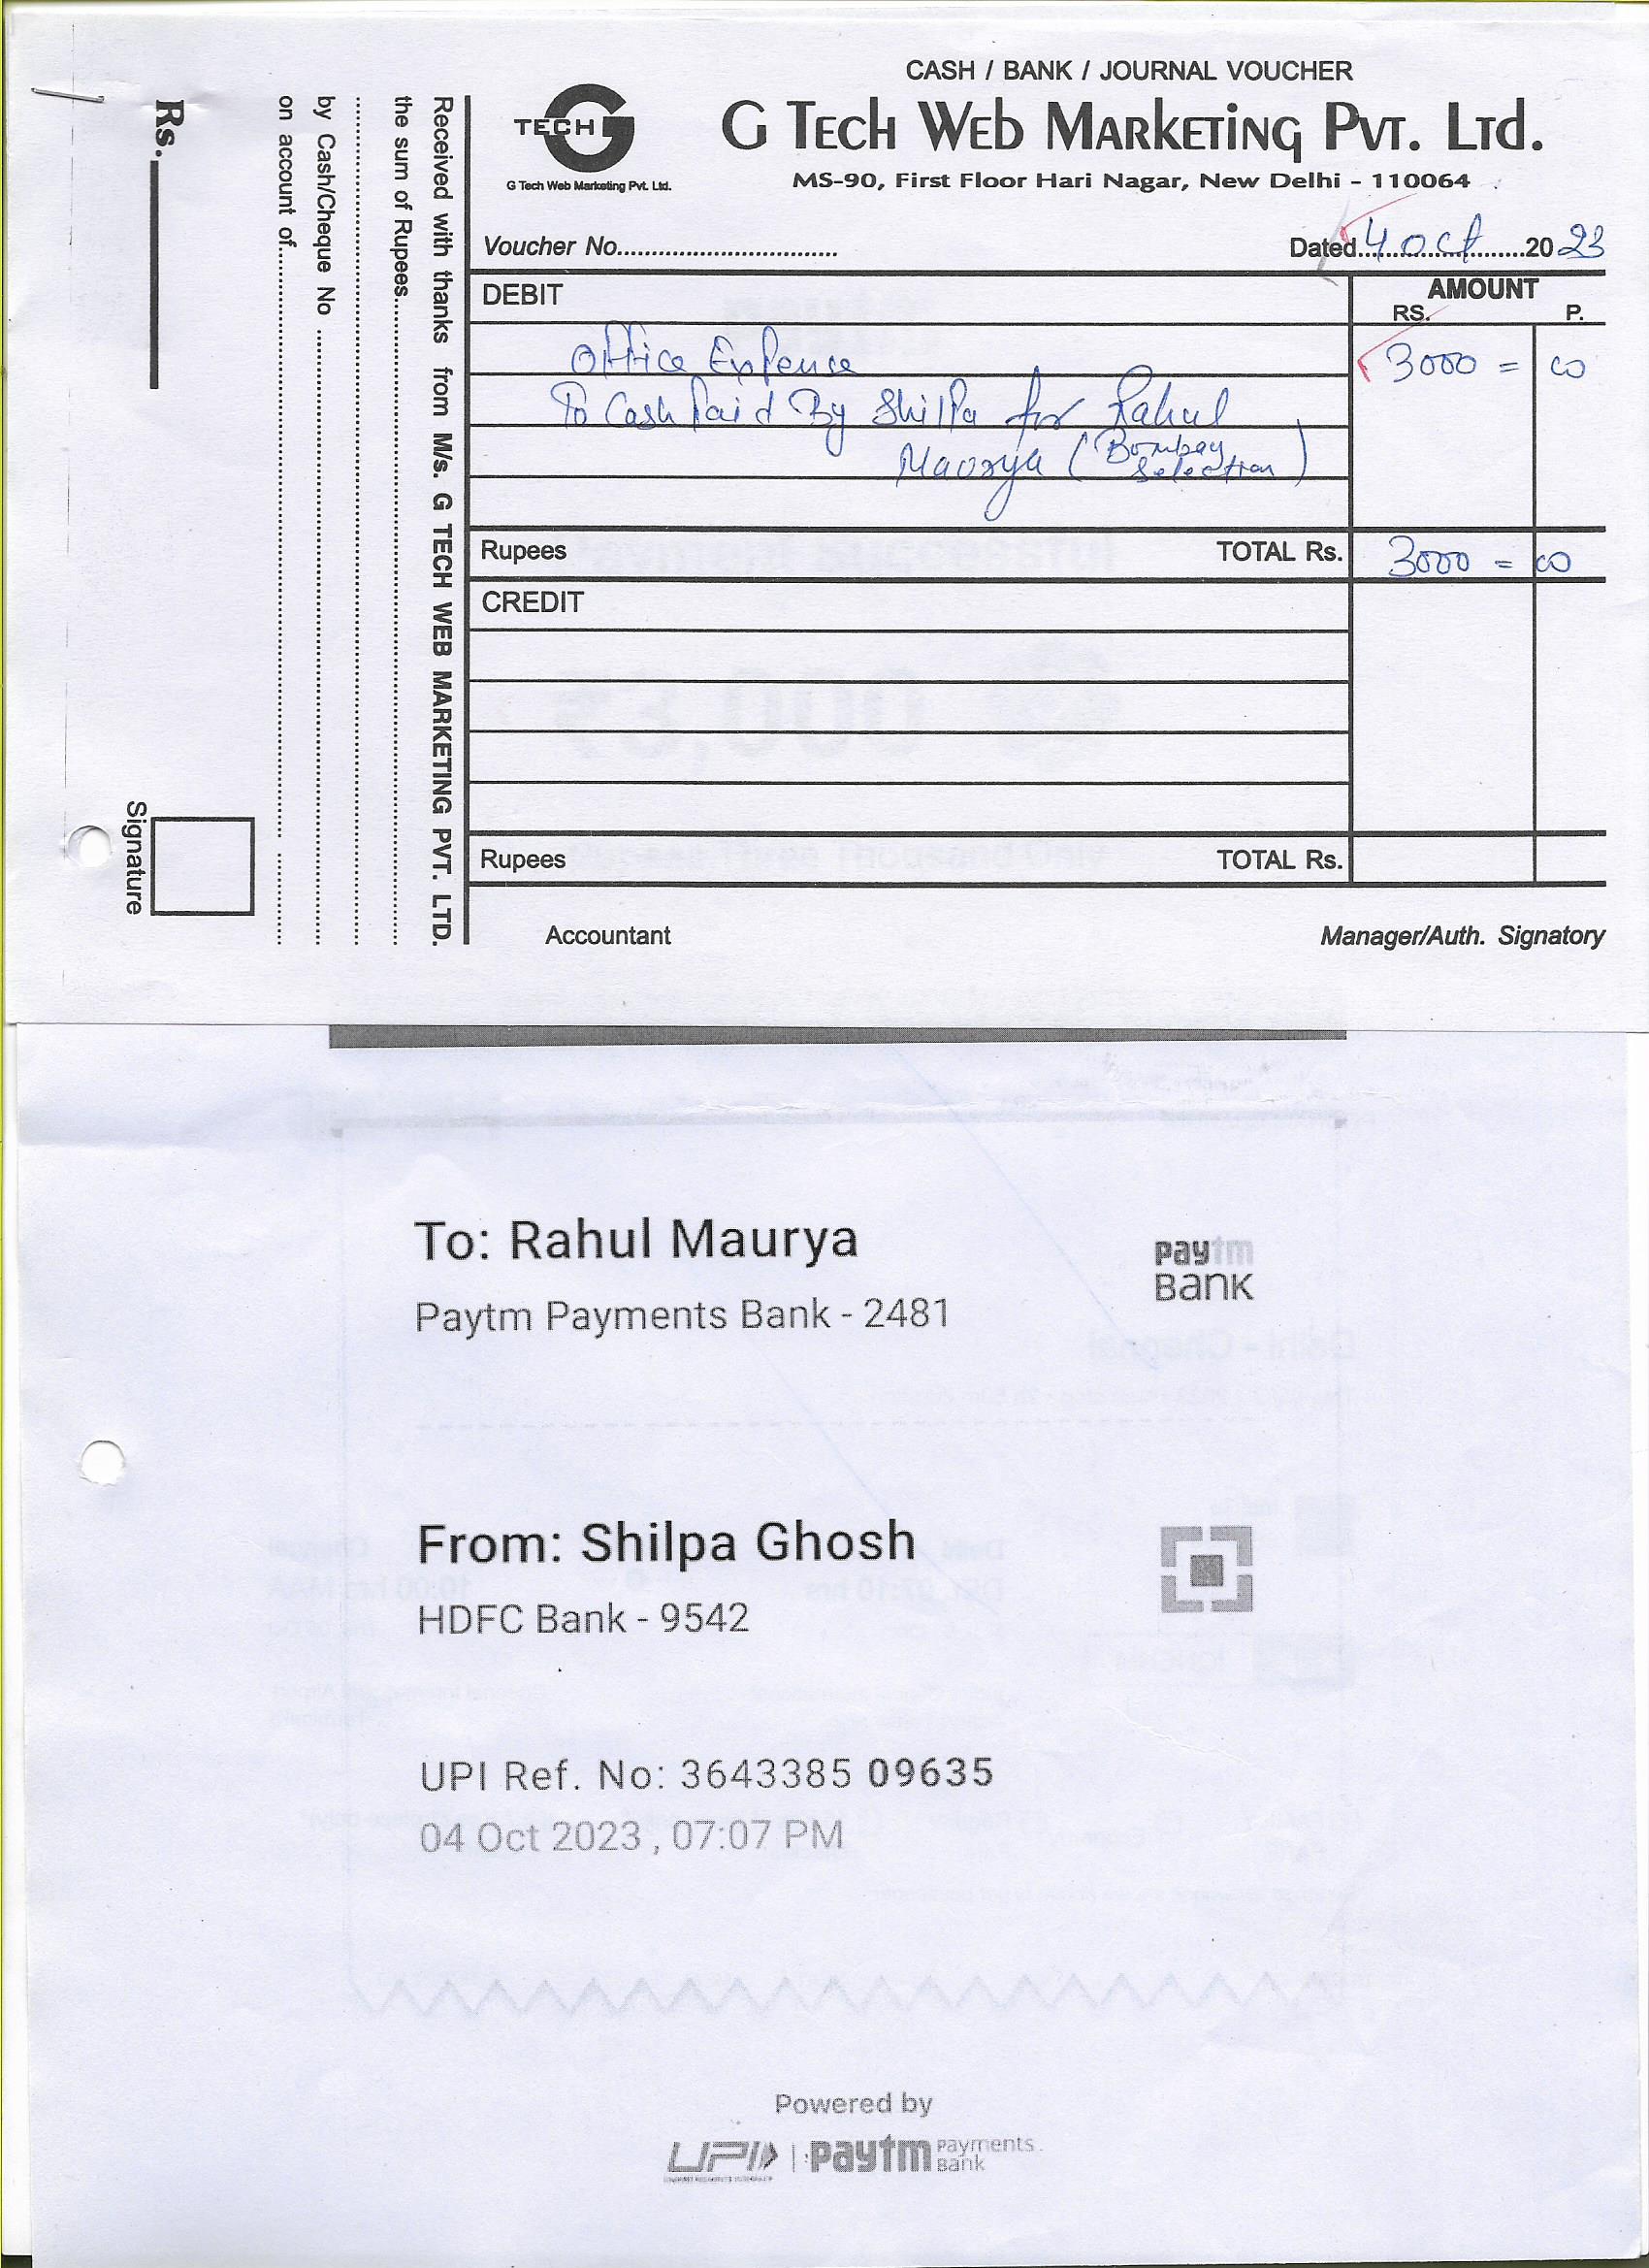 CASH / BANK / JOURNAL VOUCHER
G TECH WEB MARKETING PVT. LTD.
MS-90, First Floor Hari Nagar, New Delhi - 110064
TECH G
G Tech Web Marketing Pvt. Ltd.
Voucher No.............................. Dated 4 Oct 2023
DEBIT AMOUNT
RS. P.
Office Expense 3000 = 00
To Cash Paid By Shilpa for Rahul
Maurya (Bombay Selection)
Rupees TOTAL Rs. 3000 = 00
CREDIT
Rupees TOTAL Rs.
Accountant Manager/Auth. Signatory
Received with thanks from M/s. G TECH WEB MARKETING PVT. LTD.
the sum of Rupees
by Cash/Cheque No
on account of
Rs.
Signature
To: Rahul Maurya
Paytm Payments Bank - 2481
paytm BANK
From: Shilpa Ghosh
HDFC Bank - 9542
UPI Ref. No: 3643385 09635
04 Oct 2023 , 07:07 PM
Powered by
UPI | paytm Payments Bank